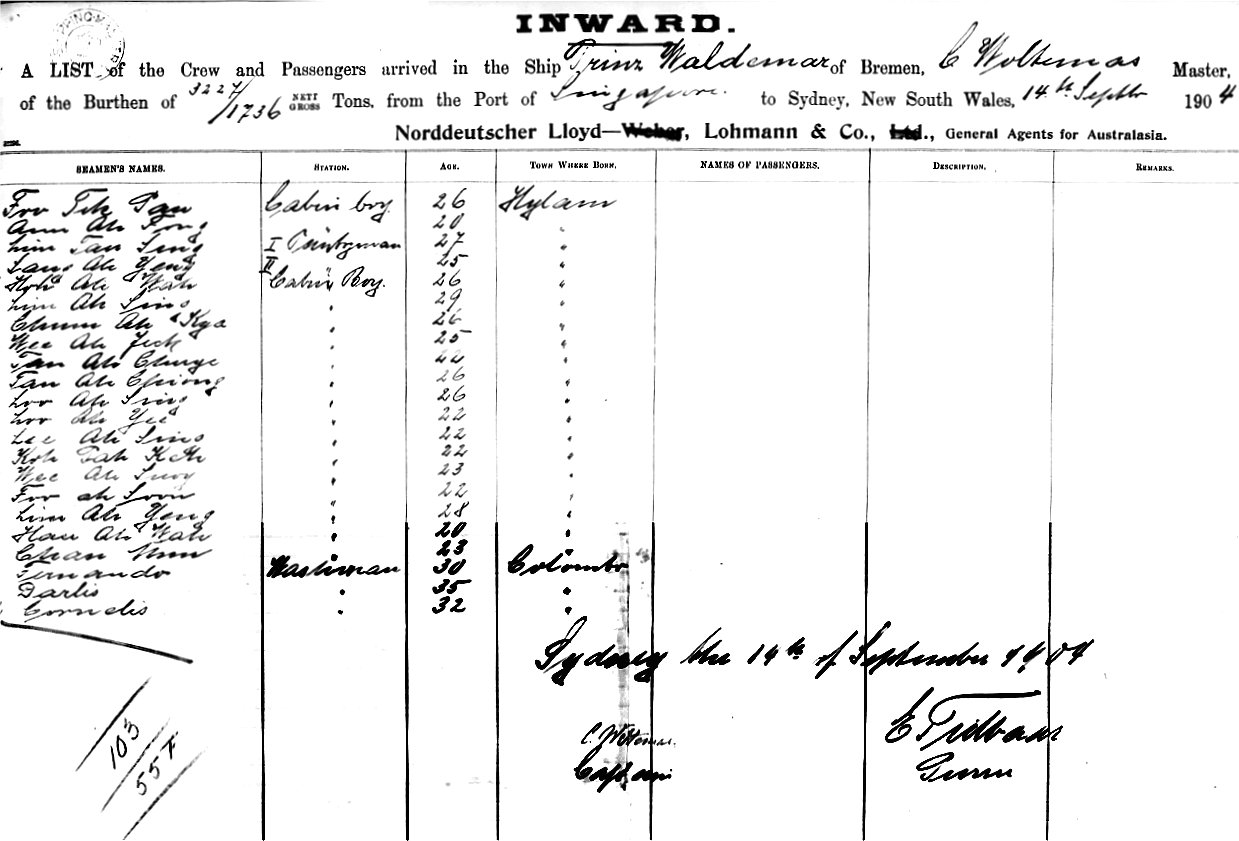 INWARD.
A LIST of the Crew and Passengers arrived in the Ship Prinz Waldemar of Bremen, C Woltemas Master,
of the Burthen of 3227/1736 NETT GROSS Tons, from the Port of Singapore. to Sydney, New South Wales, 14th Septbr 1904
Norddeutscher Lloyd—Weber, Lohmann & Co., Ltd., General Agents for Australasia.
SEAMEN'S NAMES. STATION. AGE. TOWN WHERE BORN. NAMES OF PASSENGERS. DESCRIPTION. REMARKS.
Foo Teh Pan Cabin boy. 26 Hylam
Ann Ah Fong 20 "
Lim Tan Sing I Pantryman 27 "
Ah Yeng II " 25 "
Hoh Ah Wah Cabin Boy. 26 "
Lim Ah Sing " 29 "
Chum Ah Kya " 26 "
Wee Ah Jeck " 25 "
Tan Ah " 22 "
Tan Ah Chiong " 26 "
Loo Ah Sing " 26 "
Loo Ah Yee " 22 "
Lee Ah Sing " 22 "
Koh Tah Keh " 22 "
Wee Ah " 23 "
Foo ah Soon " 22 "
Lim Ah Yong " 28 "
Han Ah Wah " 20 "
Chan Mun " 23 "
Fernando Washerman 30 Colombo
Darlis " 35 "
Cornelis " 32 "
Sydney the 14th of September 1904
C. Woltemas. E
Captain
103
557